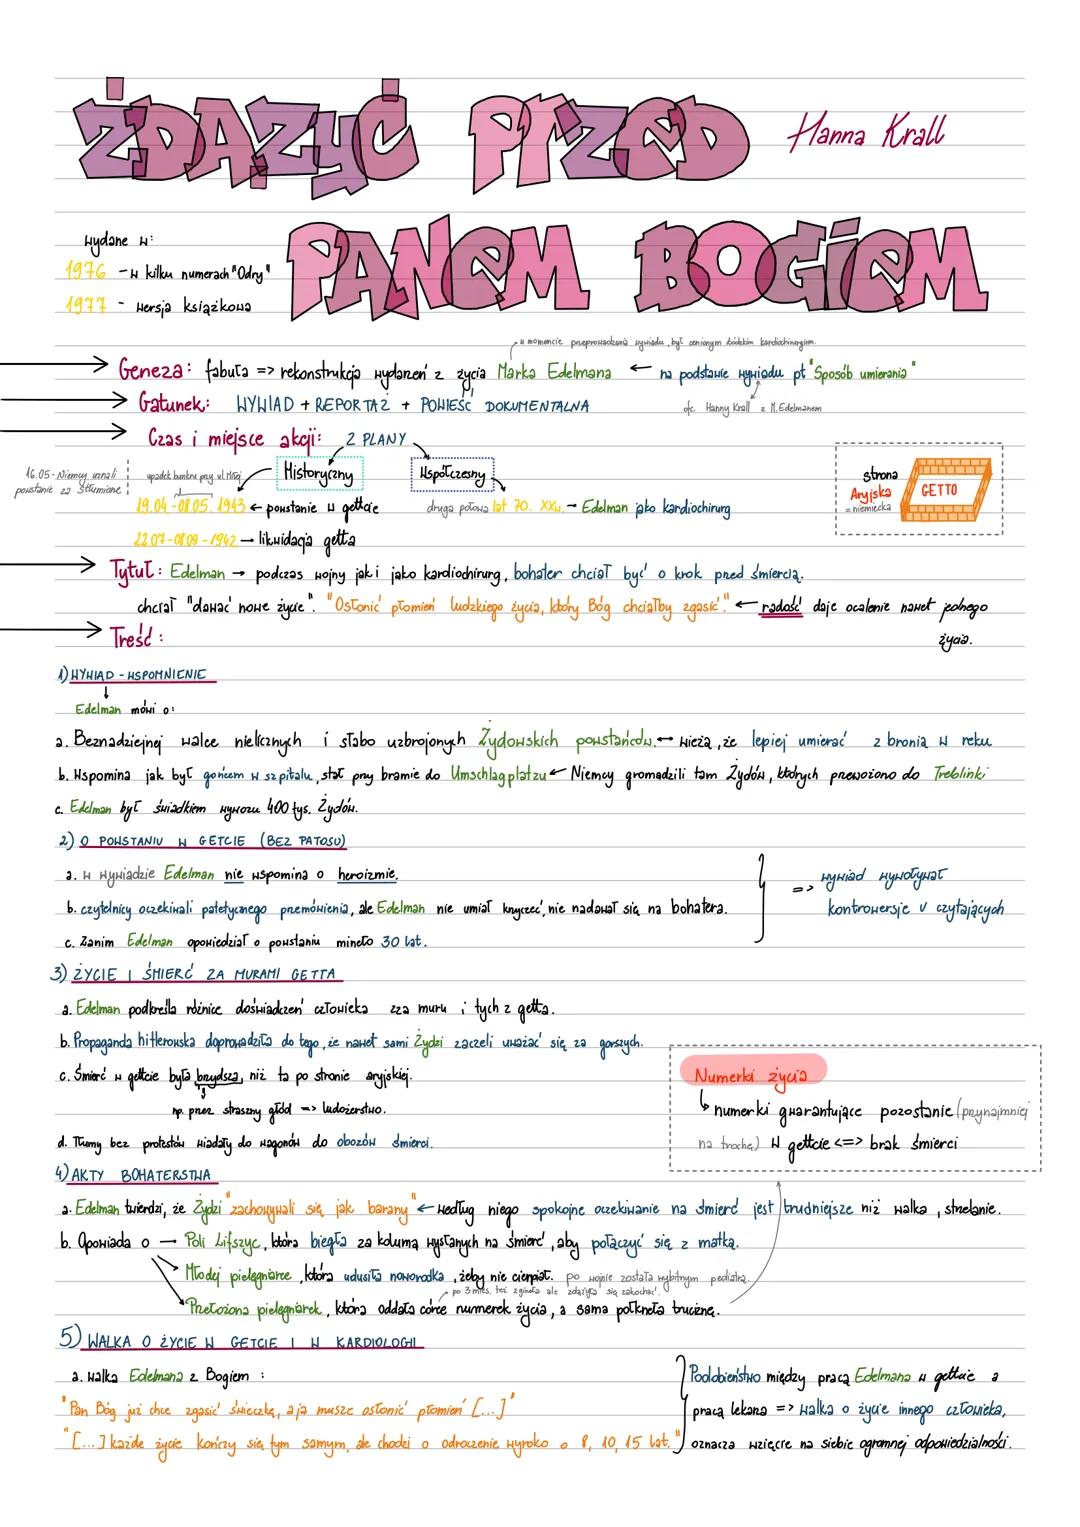 ŻDĄŻYĆ PRZED Hanna Krall
PANEM BOGIEM
wydane w:
1976 - w kilku numerach "Odry"
1977 - wersja książkowa
w momencie przeprowadzania wywiadu, był cenionym łódzkim kardiochirurgiem.
Geneza: fabuła => rekonstrukcja wydarzeń z życia Marka Edelmana ← na podstawie wywiadu pt "Sposób umierania"
Gatunek: WYWIAD + REPORTAŻ + POWIEŚĆ DOKUMENTALNA
Hanny Krall z M.Edelmanem
Czas i miejsce akcji: 2 PLANY
16.05 - Niemcy uznali powstanie za stłumione
upadek bunkru przy ul. Miłej
Historyczny
Współczesny
19.04 - 08.05. 1943 ← powstanie w getcie
druga połowa lat 70. XXw. → Edelman jako kardiochirurg
22.07 - 08.09 - 1942 → likwidacja getta
strona Aryjska = niemiecka
GETTO
Tytuł: Edelman → podczas wojny jak i jako kardiochirurg, bohater chciał być o krok przed śmiercią.
chciał "dawać nowe życie". "Osłonić płomień ludzkiego życia, który Bóg chciałby zgasić." ← radość daje ocalenie nawet jednego
życia.
Treść:
1) WYWIAD - WSPOMNIENIE
Edelman mówi o:
a. Beznadziejnej walce nielicznych i słabo uzbrojonych Żydowskich powstańców. ← wieżą, że lepiej umierać z bronią w ręku
b. Wspomina jak był gońcem w szpitalu, stał przy bramie do Umschlagplatzu ← Niemcy gromadzili tam Żydów, których przewożono do Treblinki
c. Edelman był świadkiem wywozu 400 tys. Żydów.
2) O POWSTANIU W GETCIE (BEZ PATOSU)
a. w wywiadzie Edelman nie wspomina o heroizmie.
b. czytelnicy oczekiwali patetycznego przemówienia, ale Edelman nie umiał krzyczeć, nie nadawał się na bohatera.
c. Zanim Edelman opowiedział o powstaniu minęło 30 lat.
=> wywiad wywoływał
kontrowersje u czytających
3) ŻYCIE I ŚMIERĆ ZA MURAMI GETTA
a. Edelman podkreśla różnice doświadczeń człowieka zza muru i tych z getta.
b. Propaganda hitlerowska doprowadziła do tego, że nawet sami Żydzi zaczeli uważać się za gorszych.
c. Śmierć w getcie była brzydsza, niż ta po stronie aryjskiej.
np. przez straszny głód => ludożerstwo.
d. Tłumy bez protestów wiadały do wagonów do obozów śmierci.
Numerki życia
numerki gwarantujące pozostanie (przynajmniej
na trochę) w getcie <=> brak śmierci
4) AKTY BOHATERSTWA
a. Edelman twierdzi, że Żydzi "zachowywali się jak barany" ← według niego spokojne oczekiwanie na śmierć jest trudniejsze niż walka, strzelanie.
b. Opowiada o → Poli Lifszyc, która biegła za kolumą wysłanych na śmierć, aby połączyć się z matką.
Młodej pielęgniarce, która udusiła noworodka, żeby nie cierpiał. po wojnie została wybitnym pediatrą.
po 3 mies. też zginęła ale zdążyła się zakochać.
Przełożona pielęgniarek, która oddała córce numerek życia, a sama połknęła truciznę.
5) WALKA O ŻYCIE W GETCIE I W KARDIOLOGII
a. walka Edelmana z Bogiem :
"Pan Bóg już chce zgasić świeczkę, a ja muszę osłonić płomień [...]"
"[...] każde życie kończy się tym samym, ale chodzi o odroczenie wyroko o 8, 10, 15 lat."
Podobieństwo między pracą Edelmana w getcie a
pracą lekarza => walka o życie innego człowieka,
oznacza wzięcie na siebie ogromnej odpowiedzialności.